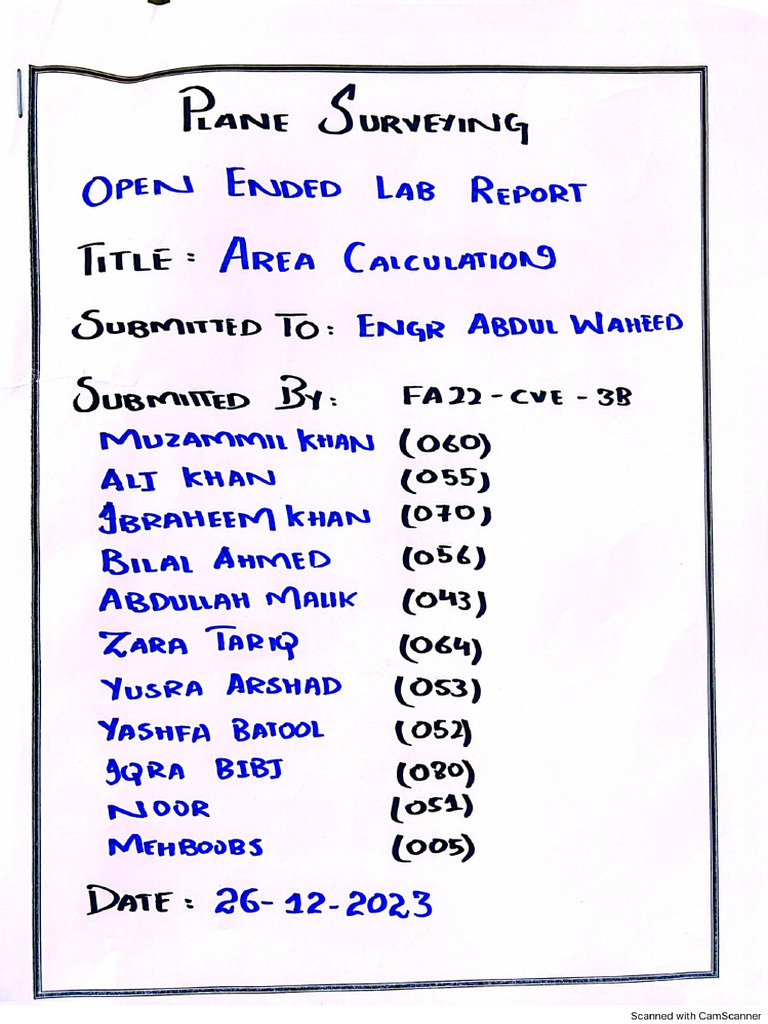 PLANE SURVEYING
OPEN ENDED LAB REPORT
TITLE: AREA CALCULATION
SUBMITTED TO: ENGR ABDUL WAHEED
SUBMITTED BY: FA22-CVE-3B
MUZAMMIL KHAN (060)
ALI KHAN (055)
IBRAHEEM KHAN (070)
BILAL AHMED (056)
ABDULLAH MALIK (043)
ZARA TARIQ (064)
YUSRA ARSHAD (053)
YASHFA BATOOL (052)
IQRA BIBI (080)
NOOR (051)
MEHBOOBS (005)
DATE: 26-12-2023
Scanned with CamScanner